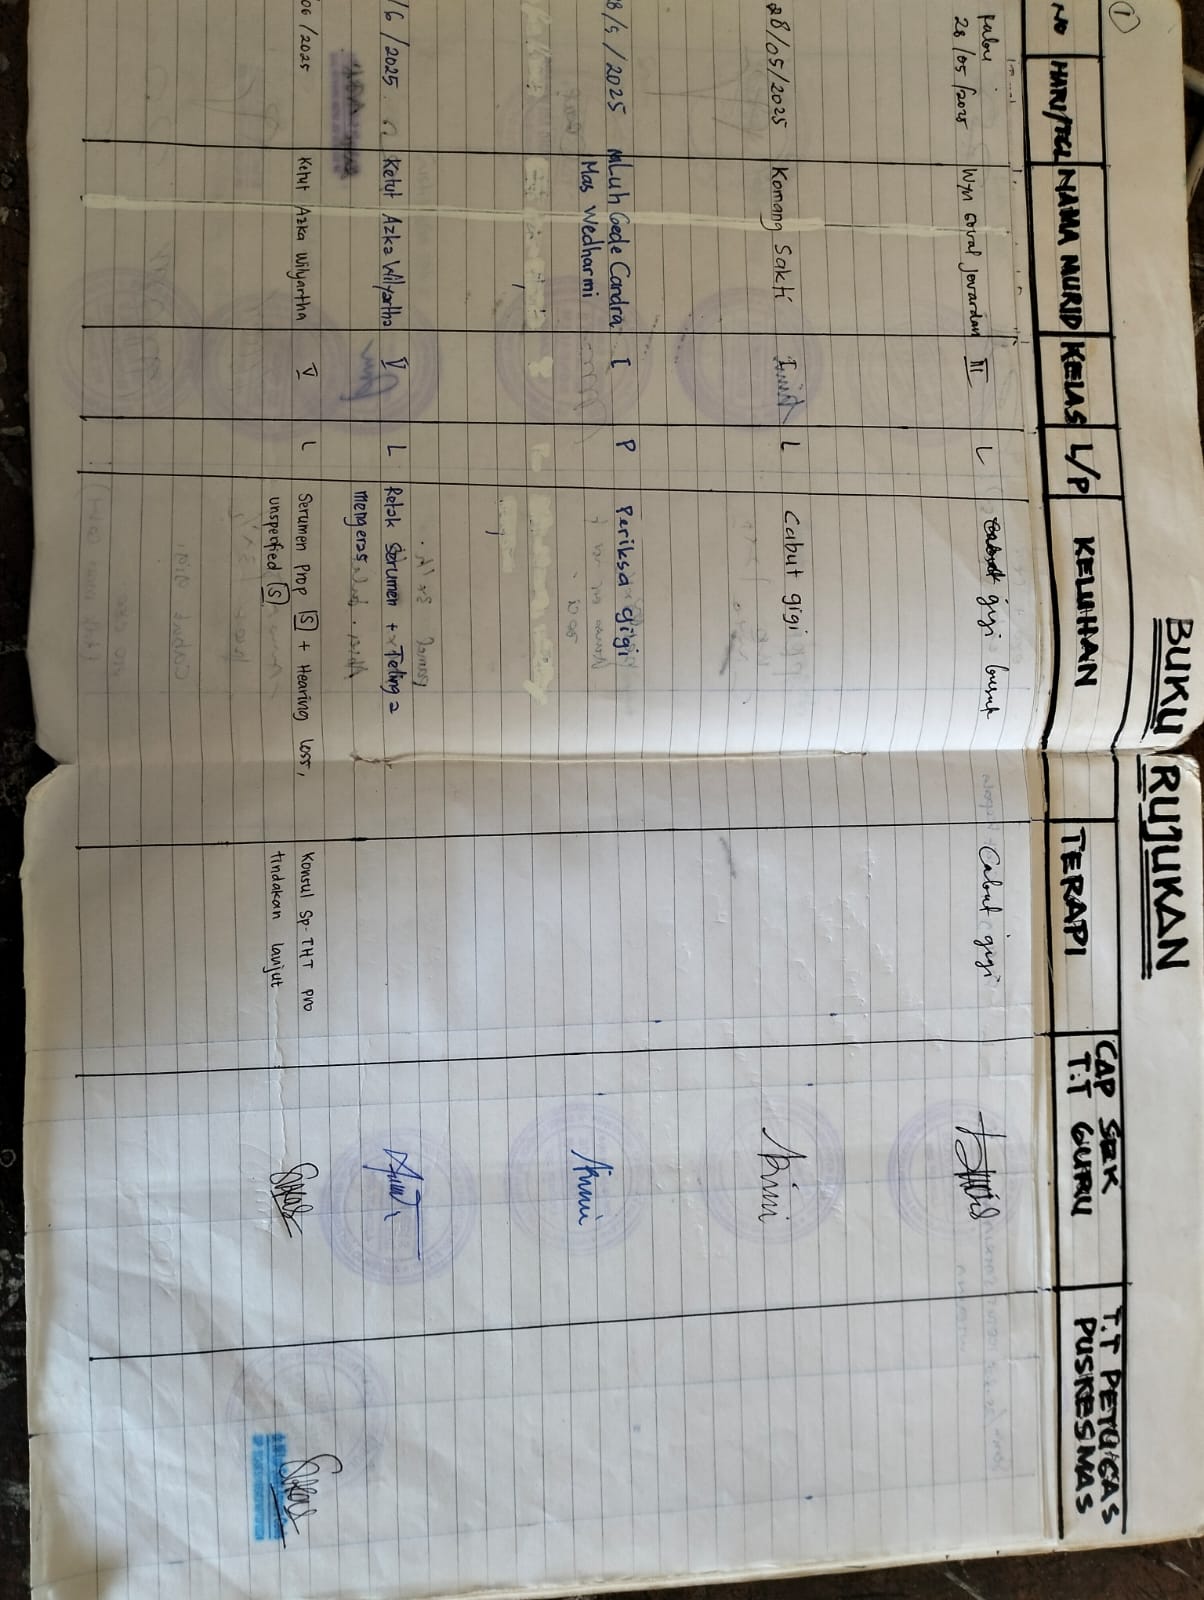 ①
BUKU RUJUKAN
NO HARI/TGL NAMA MURID KELAS L/P KELUHAN TERAPI CAP SEK T.T GURU T.T PETUGAS PUSKESMAS
Rabu
28/05/2025 Wyn III L gigi Cabut gigi
28/05/2025 Komang Sakti L Cabut gigi
8/5/2025 Luh Gede Candra I P Periksa gigi
Mas Wedharmi
/6/2025 Ketut Azka Wilyartha V L Retak Serumen + Teling a
mengeras
06/2025 Ketut Azka Wilyartha V L Serumen Prop [S] + Hearing Loss, Konsul Sp. THT pro
unspecified [S] tindakan lanjut